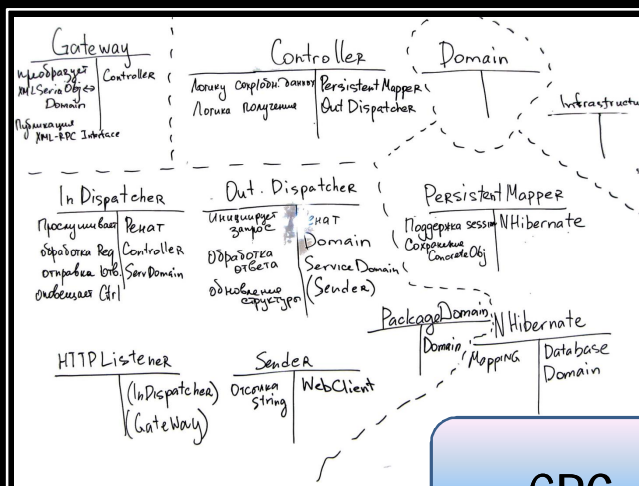 Gateway
преобразует
XMLSerialObj ↔
Domain
Публикация
XML-RPC Interface
Controller
Controller
Логику сохр/обн. данных
Логика получения
Persistent Mapper
Out Dispatcher
Domain
Infrastructu
In Dispatcher
Прослушивает
обработка Req
отправка отв.
оповещает Ctrl
Ренат
Controller
ServDomain
Out. Dispatcher
Инициирует
запрос
Обработка
ответа
обновление
структуры
нат
Domain
Service Domain
(Sender)
Persistent Mapper
Поддержка sessi
Сохранение
ConcreteObj
NHibernate
Package Domain
Domain
NHibernate
Mapping
Database
Domain
HTTPListener
(InDispatcher)
(Gateway)
Sender
Отсылка
String
WebClient